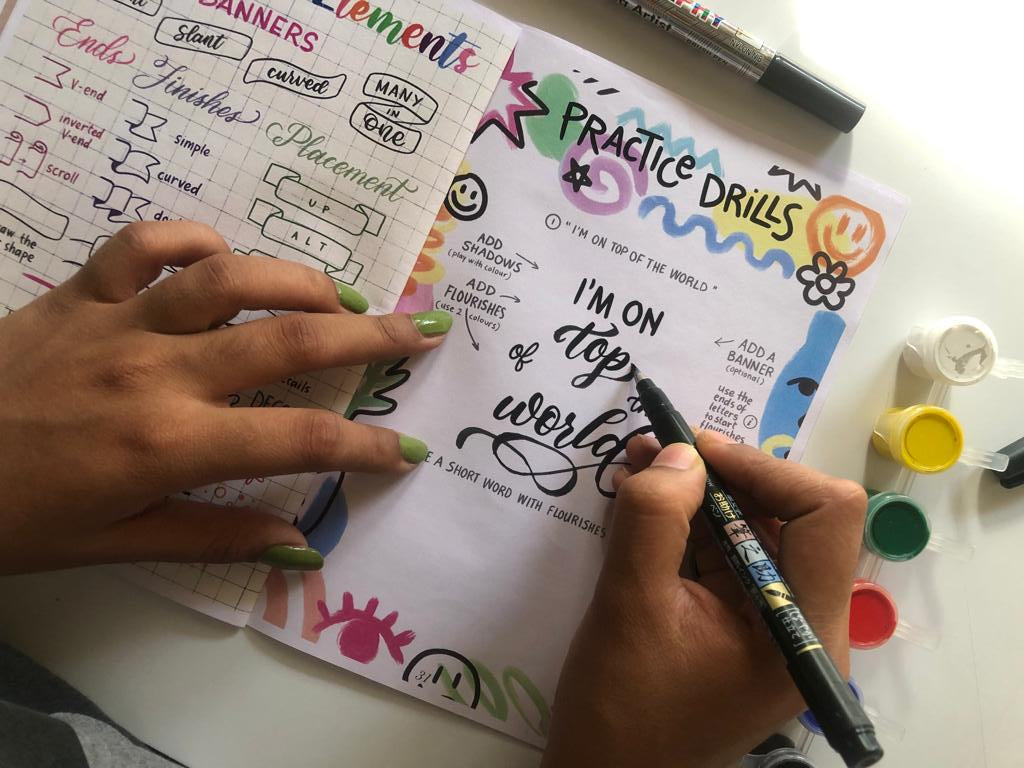 Elements
BANNERS
Ends
slant
curved
MANY
IN
one
Finishes
V-end
inverted
V-end
scroll
simple
curved
Placement
UP
ALT
draw the
shape
PRACTICE DRILLS
① "I'M ON TOP OF THE WORLD"
ADD
SHADOWS
(play with colour)
ADD
FLOURISHES
(use 2 colours)
I'M ON
top
of
world
ADD A
BANNER
(optional)
use the
ends of
letters
to start
flourishes
A SHORT WORD WITH FLOURISHES
31